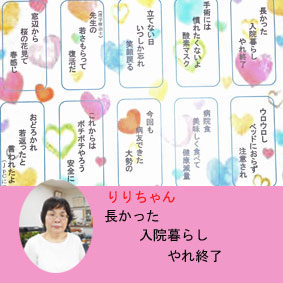 長かった
入院暮らし
やれ終了
手術には
慣れたくないよ
酸素マスク
立てない日
いつか忘れ
笑顔戻る
先生の
若さもらって
復活だ
窓辺から
桜の花見て
春感じ
ウロウロし
ベッドにおらず
注意され
病院食
美味しく食べて
健康減量
今回も
病友できた
大勢の
これからは
ボチボチやろう
安全に
おどろかれ
若返ったと
言われたよ
りりちゃん
長かった
入院暮らし
やれ終了